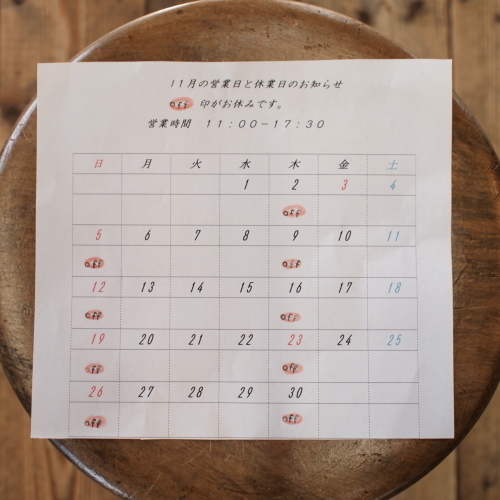 11月の営業日と休業日のお知らせ
off 印がお休みです。
営業時間 11:00-17:30
日 月 火 水 木 金 土
1 2 3 4
off
5 6 7 8 9 10 11
off off
12 13 14 15 16 17 18
off off
19 20 21 22 23 24 25
off off
26 27 28 29 30
off off